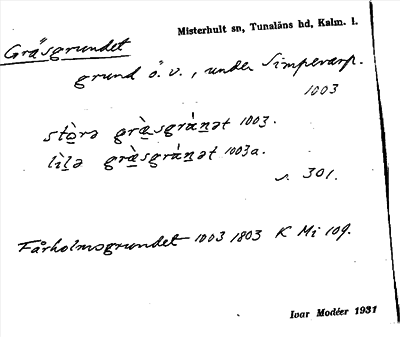 Misterhult sn, Tunaläns hd, Kalm. l.
Gräsgrundet
grund ö. v., under Simpevarp.
1003
stò̱rə græ̱̀sgrán̠ət 1003.
lìl̠ə græ̱̀sgrán̠ət 1003a.
s. 301.
Fårholmsgrundet 1003 1803 K Mi 109.
Ivar Modéer 1931